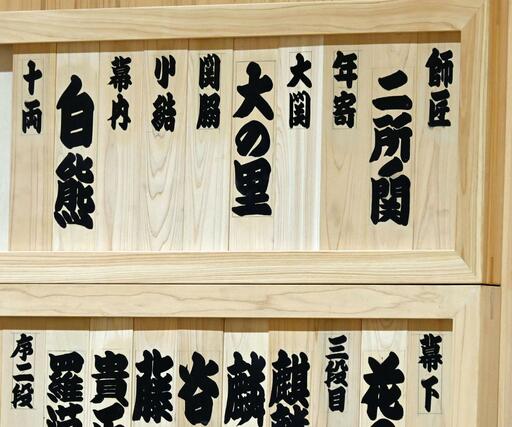 師匠
二所関
年寄
大関
大の里
関脇
小結
幕内
白熊
十両
幕下
花の
三段目
麒麟
麟
谷
藤
貴
羅
序二段